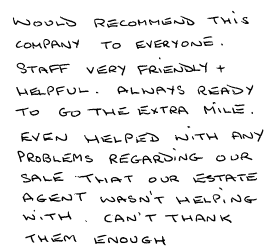 WOULD RECOMMEND THIS
COMPANY TO EVERYONE.
STAFF VERY FRIENDLY +
HELPFUL. ALWAYS READY
TO GO THE EXTRA MILE.
EVEN HELPED WITH ANY
PROBLEMS REGARDING OUR
SALE THAT OUR ESTATE
AGENT WASN'T HELPING
WITH. CAN'T THANK
THEM ENOUGH